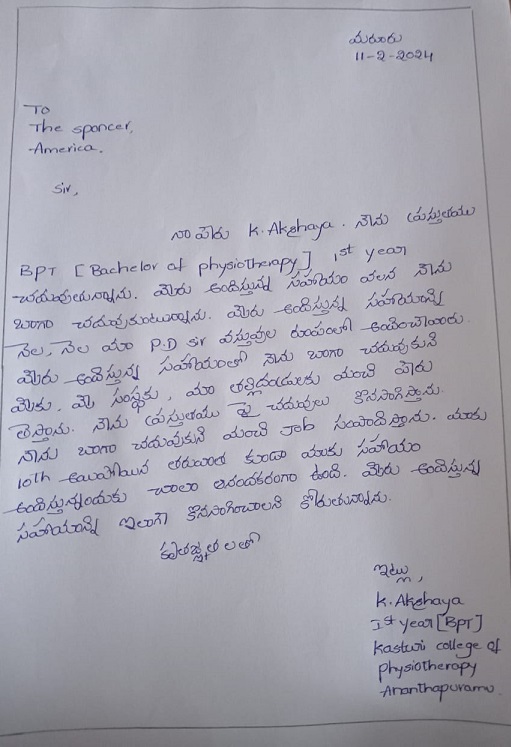 మరూరు
11-2-2024
To
The sponcer,
America.
Sir,
నా పేరు K. Akshaya. నేను ప్రస్తుతము
BPT [Bachelor of physiotherapy] 1st year
చదువుతున్నాను. మీరు అందిస్తున్న సహాయం వలన నేను
బాగా చదువుకుంటున్నాను. మీరు అందిస్తున్న సహాయాన్ని
నెల, నెల మా P.D sir వస్తువుల రూపంలో అందించేవారు.
మీరు అందిస్తున్న సహాయంతో నేను బాగా చదువుకుని
మీకు, మీ సంస్థకు, మా తల్లిదండ్రులకు మంచి పేరు
తెస్తాను. నేను ప్రస్తుతము పై చదువులు కొనసాగిస్తాను.
నాను బాగా చదువుకుని మంచి Job సంపాదిస్తాను. మాకు
10th అయిపోయిన తరువాత కూడా మాకు సహాయం
అందిస్తున్నందుకు చాలా ఆనందకరంగా ఉంది. మీరు అందిస్తున్న
సహాయాన్ని ఇలాగే కొనసాగించాలని కోరుతున్నాను.
కృతజ్ఞతలతో
ఇట్లు,
K. Akshaya
Ist year [BPT]
Kasturi college of
physiotherapy
Ananthapuramu.